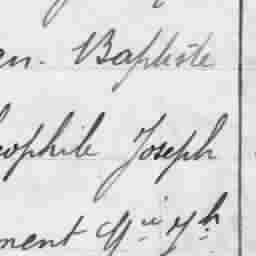 en. Baptiste
eophile Joseph
ment Mie Jh